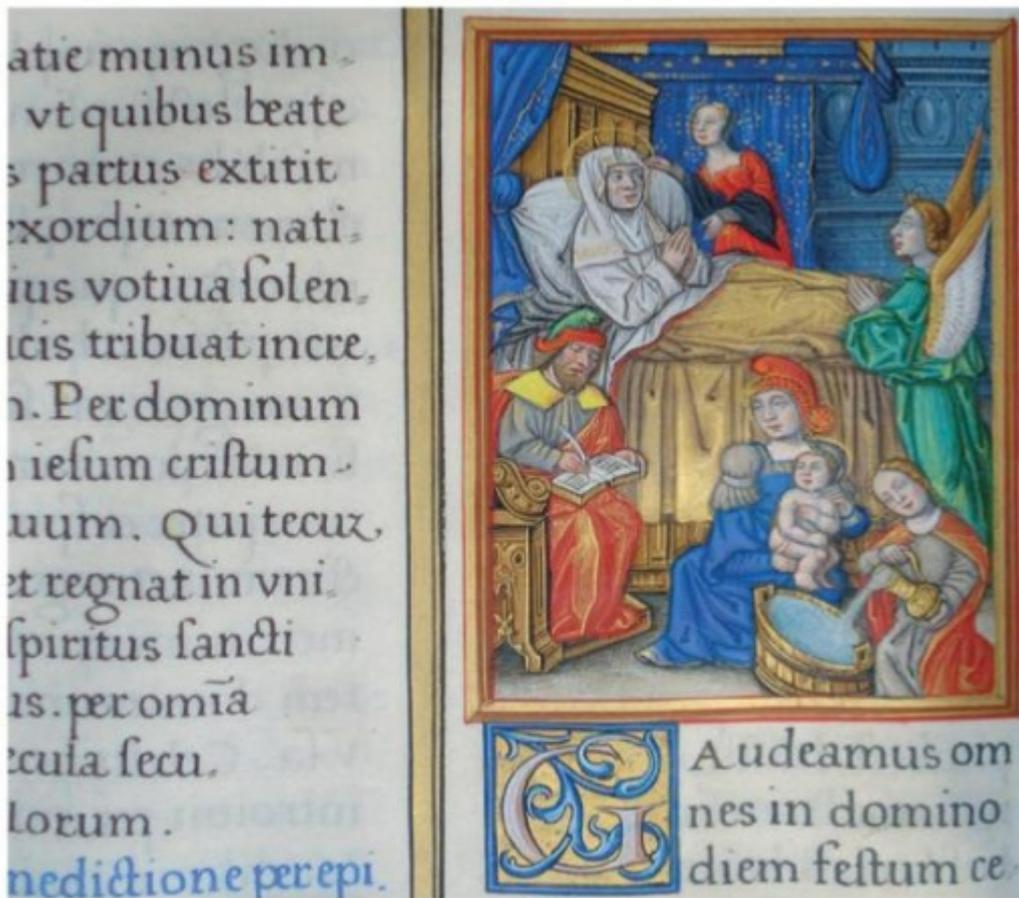 atie munus im
vt quibus beate
s partus extitit
exordium: nati
ius votiua ſolen
icis tribuat incre
. Per dominum
ieſum criſtum
uum. Qui tecuz
et regnat in vni
ſpiritus ſancti
us. per om̄ia
ecula ſecu
lorum.
nedictione per epi
GAudeamus om
nes in domino
diem feſtum ce